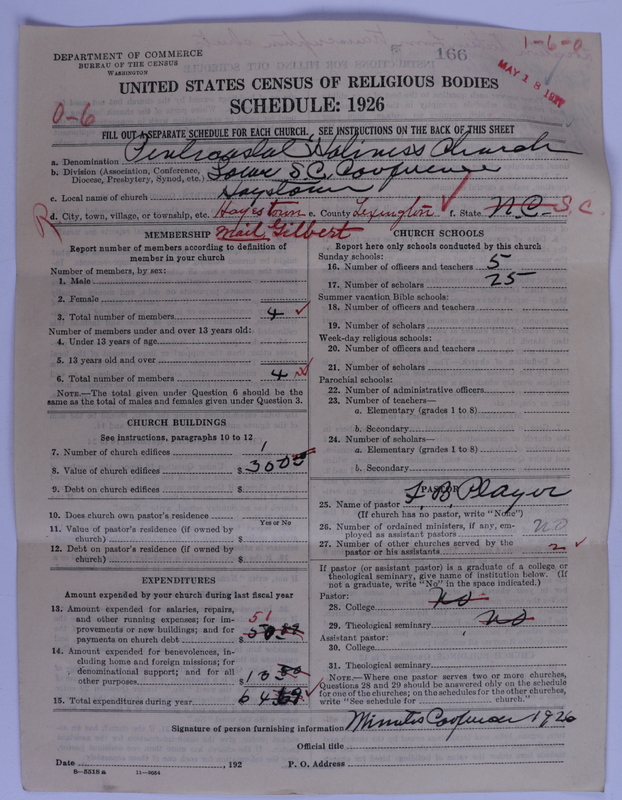 166
1-6-0
MAY 18 1927
DEPARTMENT OF COMMERCE
BUREAU OF THE CENSUS
WASHINGTON
UNITED STATES CENSUS OF RELIGIOUS BODIES
SCHEDULE: 1926
0-6
FILL OUT A SEPARATE SCHEDULE FOR EACH CHURCH. SEE INSTRUCTIONS ON THE BACK OF THIS SHEET
a. Denomination Pentecostal Holiness Church
b. Division (Association, Conference, Diocese, Presbytery, Synod, etc.) Lower S.C. Conference
c. Local name of church Haystown
d. City, town, village, or township, etc. Hayestown e. County Lexington f. State N.C. S.C.
R
Mail Gilbert
MEMBERSHIP
Report number of members according to definition of
member in your church
Number of members, by sex:
1. Male
2. Female
3. Total number of members 4
Number of members under and over 13 years old:
4. Under 13 years of age
5. 13 years old and over
6. Total number of members 4
NOTE.—The total given under Question 6 should be
same as the total of males and females given under Question 3.
CHURCH BUILDINGS
See instructions, paragraphs 10 to 12
7. Number of church edifices 1
8. Value of church edifices $ 300
9. Debt on church edifices $
10. Does church own pastor's residence
Yes or No
11. Value of pastor's residence (if owned by
church) $
12. Debt on pastor's residence (if owned by
church) $
EXPENDITURES
Amount expended by your church during last fiscal year
13. Amount expended for salaries, repairs,
and other running expenses; for im-
provements or new buildings; and for
payments on church debt $ 51
14. Amount expended for benevolences, in-
cluding home and foreign missions; for
denominational support; and for all
other purposes $ 13
15. Total expenditures during year 64
CHURCH SCHOOLS
Report here only schools conducted by this church
Sunday schools:
16. Number of officers and teachers 5
17. Number of scholars 25
Summer vacation Bible schools:
18. Number of officers and teachers
19. Number of scholars
Week-day religious schools:
20. Number of officers and teachers
21. Number of scholars
Parochial schools:
22. Number of administrative officers
23. Number of teachers—
a. Elementary (grades 1 to 8)
b. Secondary
24. Number of scholars—
a. Elementary (grades 1 to 8)
b. Secondary
PASTOR
25. Name of pastor L. B. Player
(If church has no pastor, write "None")
26. Number of ordained ministers, if any, em-
ployed as assistant pastors no
27. Number of other churches served by the
pastor or his assistants 2
If pastor (or assistant pastor) is a graduate of a college or
theological seminary, give name of institution below. (If
not a graduate, write "No" in the space indicated.)
Pastor:
28. College no
29. Theological seminary no
Assistant pastor:
30. College
31. Theological seminary
NOTE.—Where one pastor serves two or more churches,
Questions 28 and 29 should be answered only on the schedule
for one of the churches; on the schedules for the other churches,
write "See schedule for church."
Signature of person furnishing information Minutes Conference 1926
Official title
Date , 192 P. O. Address
8—5518a 11—9064